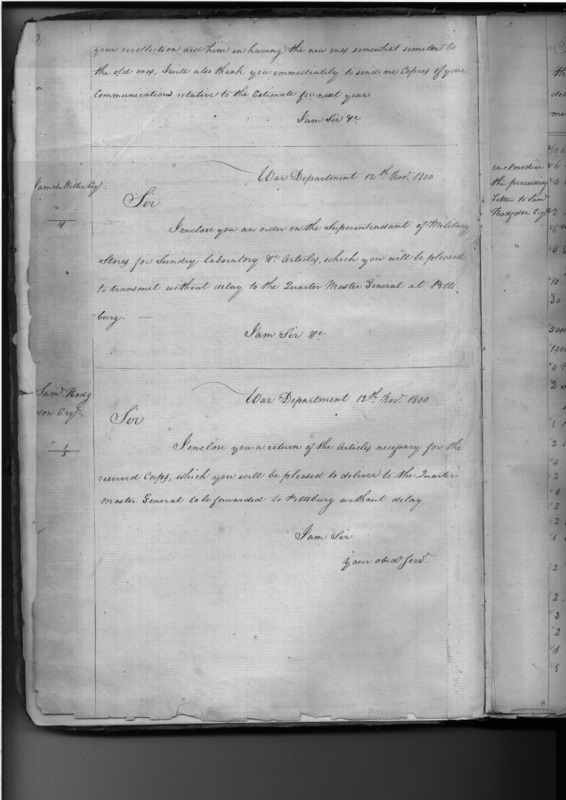 8
your recollection aid him in having the new ones somewhat similar to
the old ones, I will also thank you immediately to send me Copies of your
Communications relative to the Estimate for next year
I am Sir &c.
War Department 12th. Novr. 1800
Sir
I enclose you an order on the Superintendant of Military
Stores for Sundry laboratory &c. Articles, which you will be pleased
to transmit without delay to the Quarter Master General at Pitts
burg.
I am Sir &c
Saml. Hodg
don Esqr.
1/5
War Department 12th. Novr. 1800
Sir
I enclose you a return of the Articles necessary for the
reserved Corps, which you will be pleased to deliver to the Quarter
Master General to be forwarded to Pittsburg without delay
I am Sir
Your obedt Servt.
enclosed in
the preceeding
Letter to Saml.
Hodgdon Esqr.